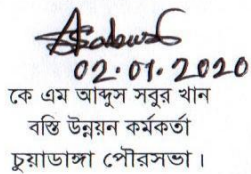 02.01.2020
কে এম আব্দুস সবুর খান
বস্তি উন্নয়ন কর্মকর্তা
চুয়াডাঙ্গা পৌরসভা।